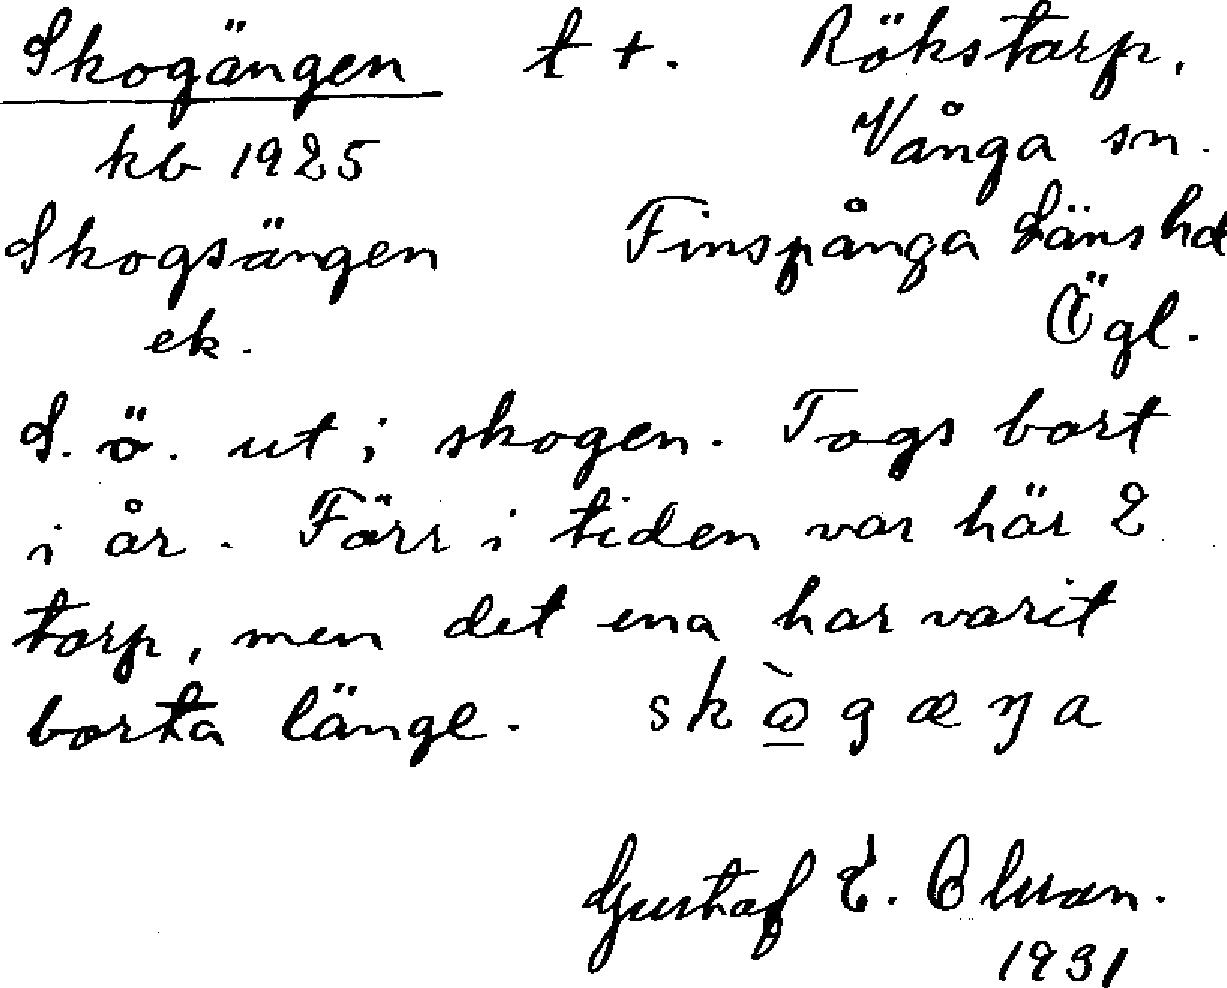 Skogängen t +. Rökstarp,
kb 1925 Vånga sn.
Skogsängen Finspånga Läns hd
ek. Ögl.
S. ö. ut i skogen. Togs bort
i år. Förr i tiden var här 2
torp, men det ena har varit
borta länge. skògæŋa
Gustaf E.
1931